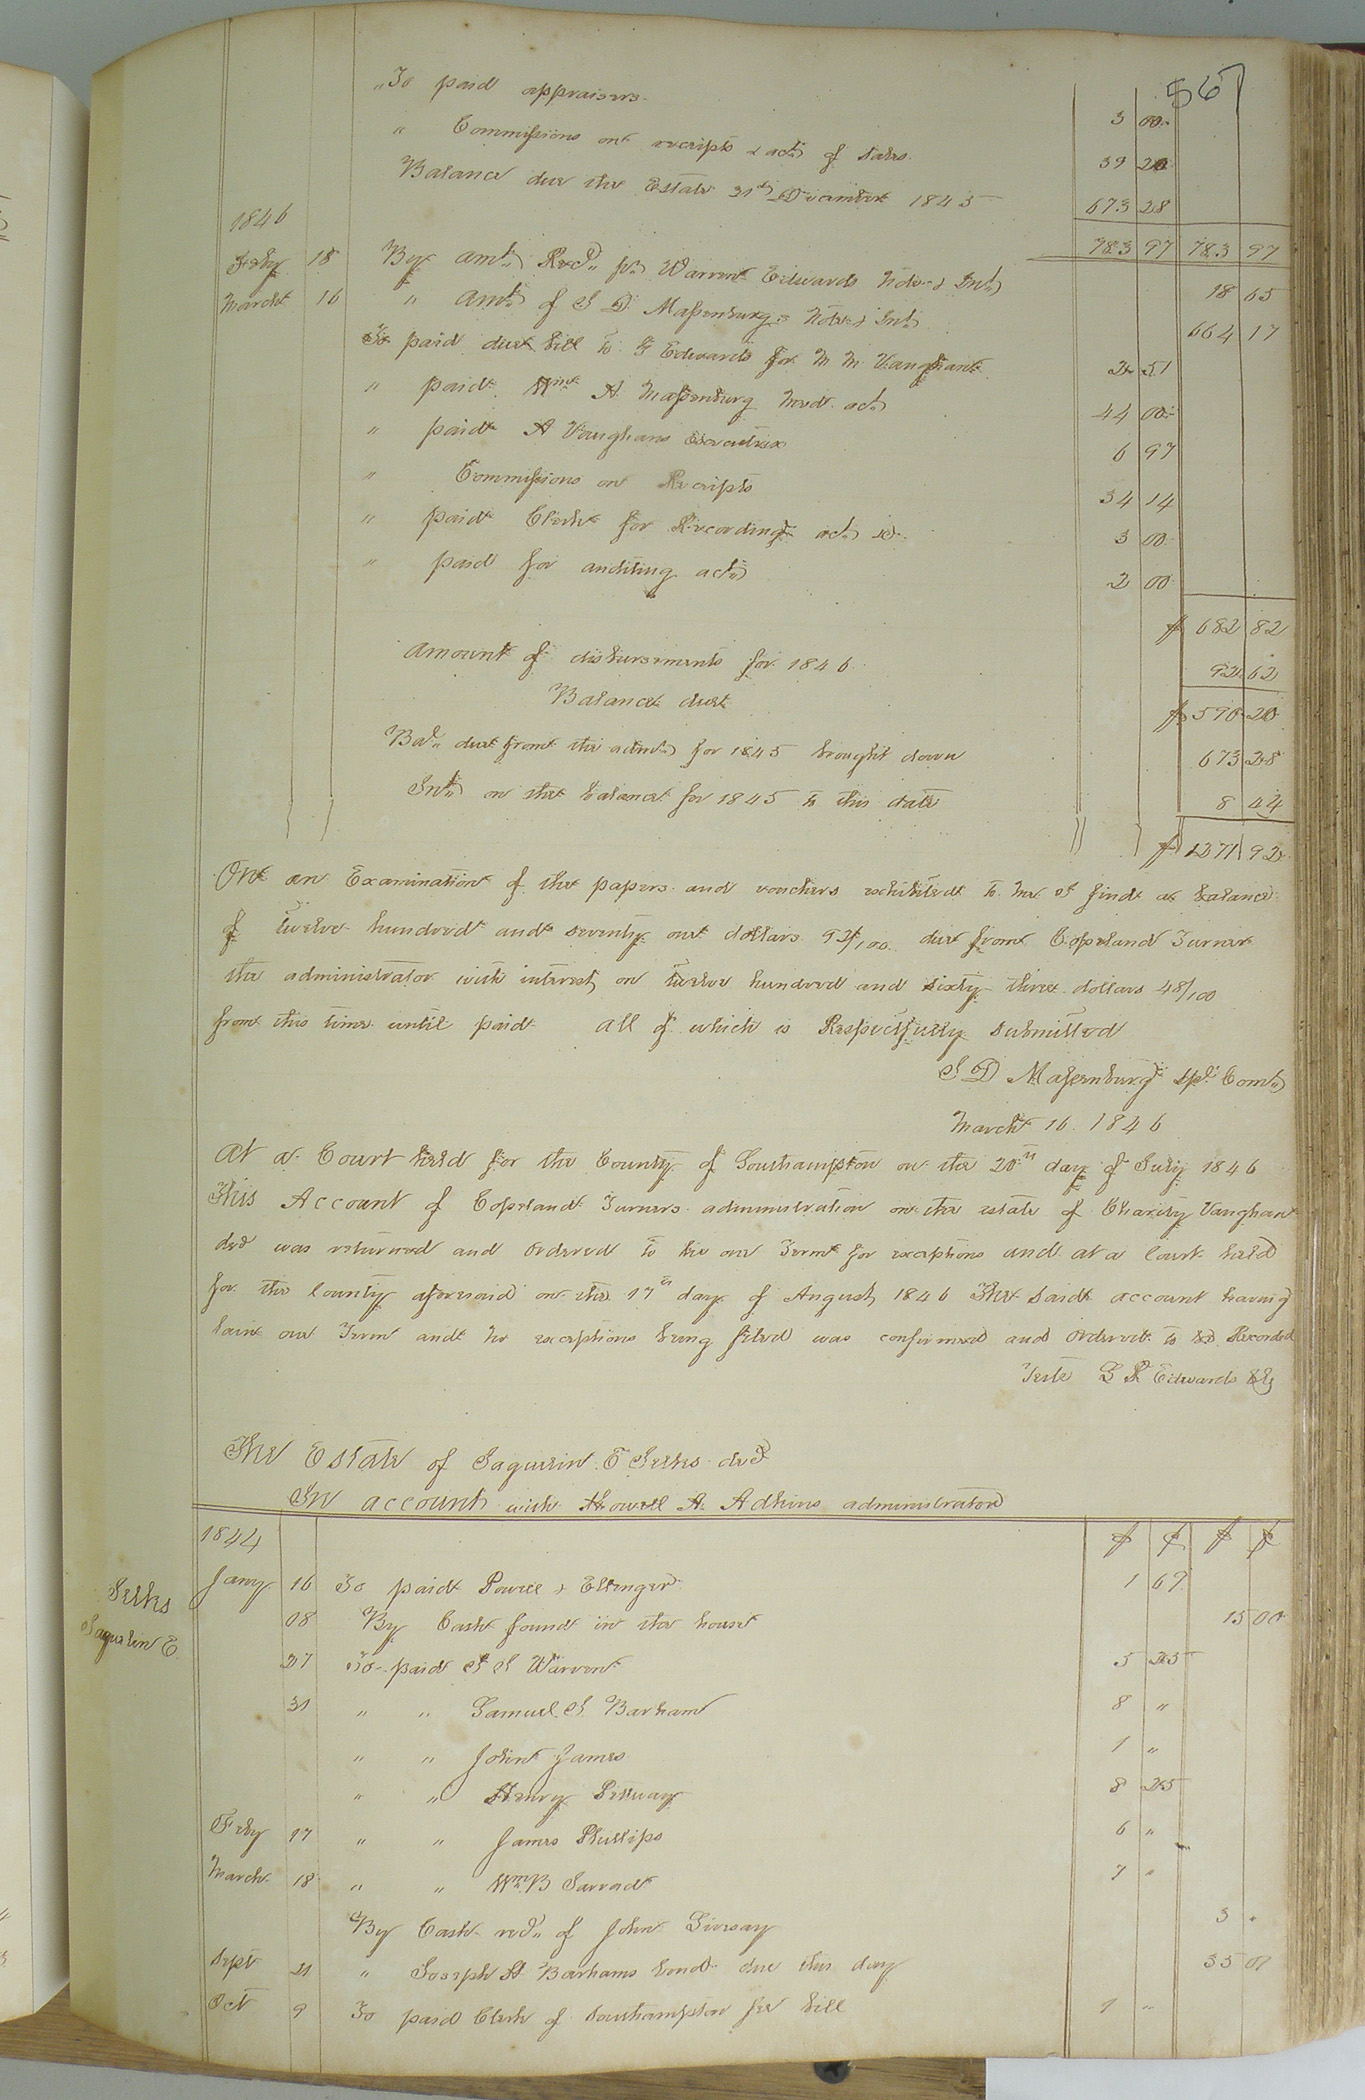 567
" To paid appraisers 3 00
" Commissions on receipts & acts of sales 39 20
Balance due the Estate 31st December 1845 673 28
1846 783 97 783 97
Feby 18 By amt. Recd. pr. Warren Edwards Note & Int. 18 65
March 16 " Amt. of S D Massenburgs Note & Int. 664 17
To paid due bill to Edwards for M M Vaughan 2 51
" paid Wm A Massenburg Med. act. 44 00
" paid A Vaughans Executrix 6 97
" Commissions on Receipts 34 14
" paid Clerk for Recording act. &c. 3 00
" paid for auditing act. 2 00
$ 682 82
Amount of disbursements for 1846 92 62
Balance due $ 590 20
Bal. due from the adm. for 1845 brought down 673 28
Int. on the balance for 1845 to this date 8 44
$ 1271 92
On an Examination of the papers and vouchers exhibited to me I find a balance
of twelve hundred and seventy one dollars 92/100 due from Copeland Turner
the administrator with interest on twelve hundred and sixty three dollars 48/100
from this time until paid All of which is Respectfully submitted
S D Massenburg Spl. Com.
March 16 1846
At a Court held for the County of Southampton on the 20th day of July 1846
This Account of Copeland Turners administration on the estate of Charity Vaughan
decd was returned and Ordered to lie one Term for exceptions and at a Court held
for the County aforesaid on the 17th day of August 1846 The said account having
lain one Term and no exceptions being filed was confirmed and Ordered to be Recorded
Teste L R Edwards Clk
The Estate of Jaquelin E Selks decd
In account with Howell A. Adkins administrator
1844 $ ¢ $ ¢
Jany 16 To paid Powell & Ellenger 1 69
Selks
Jaquelin E
08 By Cash found in the house 15 00
27 To paid Warren 5 25
31 " " Samuel J Barham 8 "
" " John James 1 "
" " Henry 8 25
Feby 17 " " James Phillips 6 "
March 18 " " Wm B Jarrad 7 "
By Cash recd. of John Livesay 3 "
Sept 21 " Joseph H Barhams bond due this day 35 01
Oct 9 To paid Clerk of Southampton fee bill 1 "